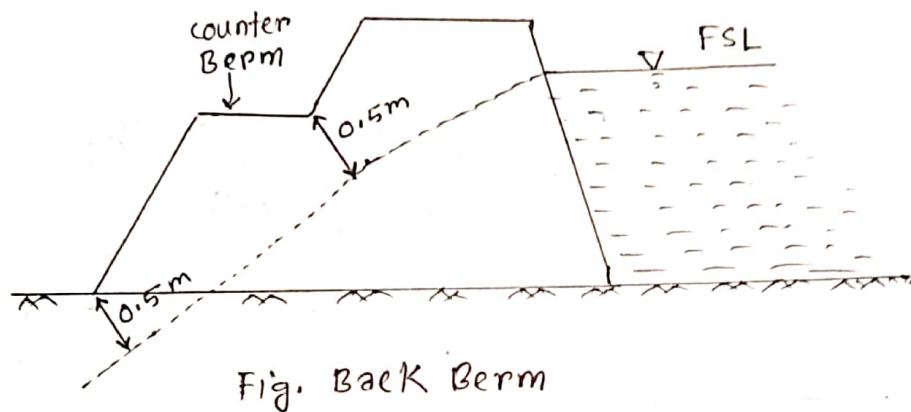 counter
Berm
FSL
0.5m
0.5m
Fig. Back Berm